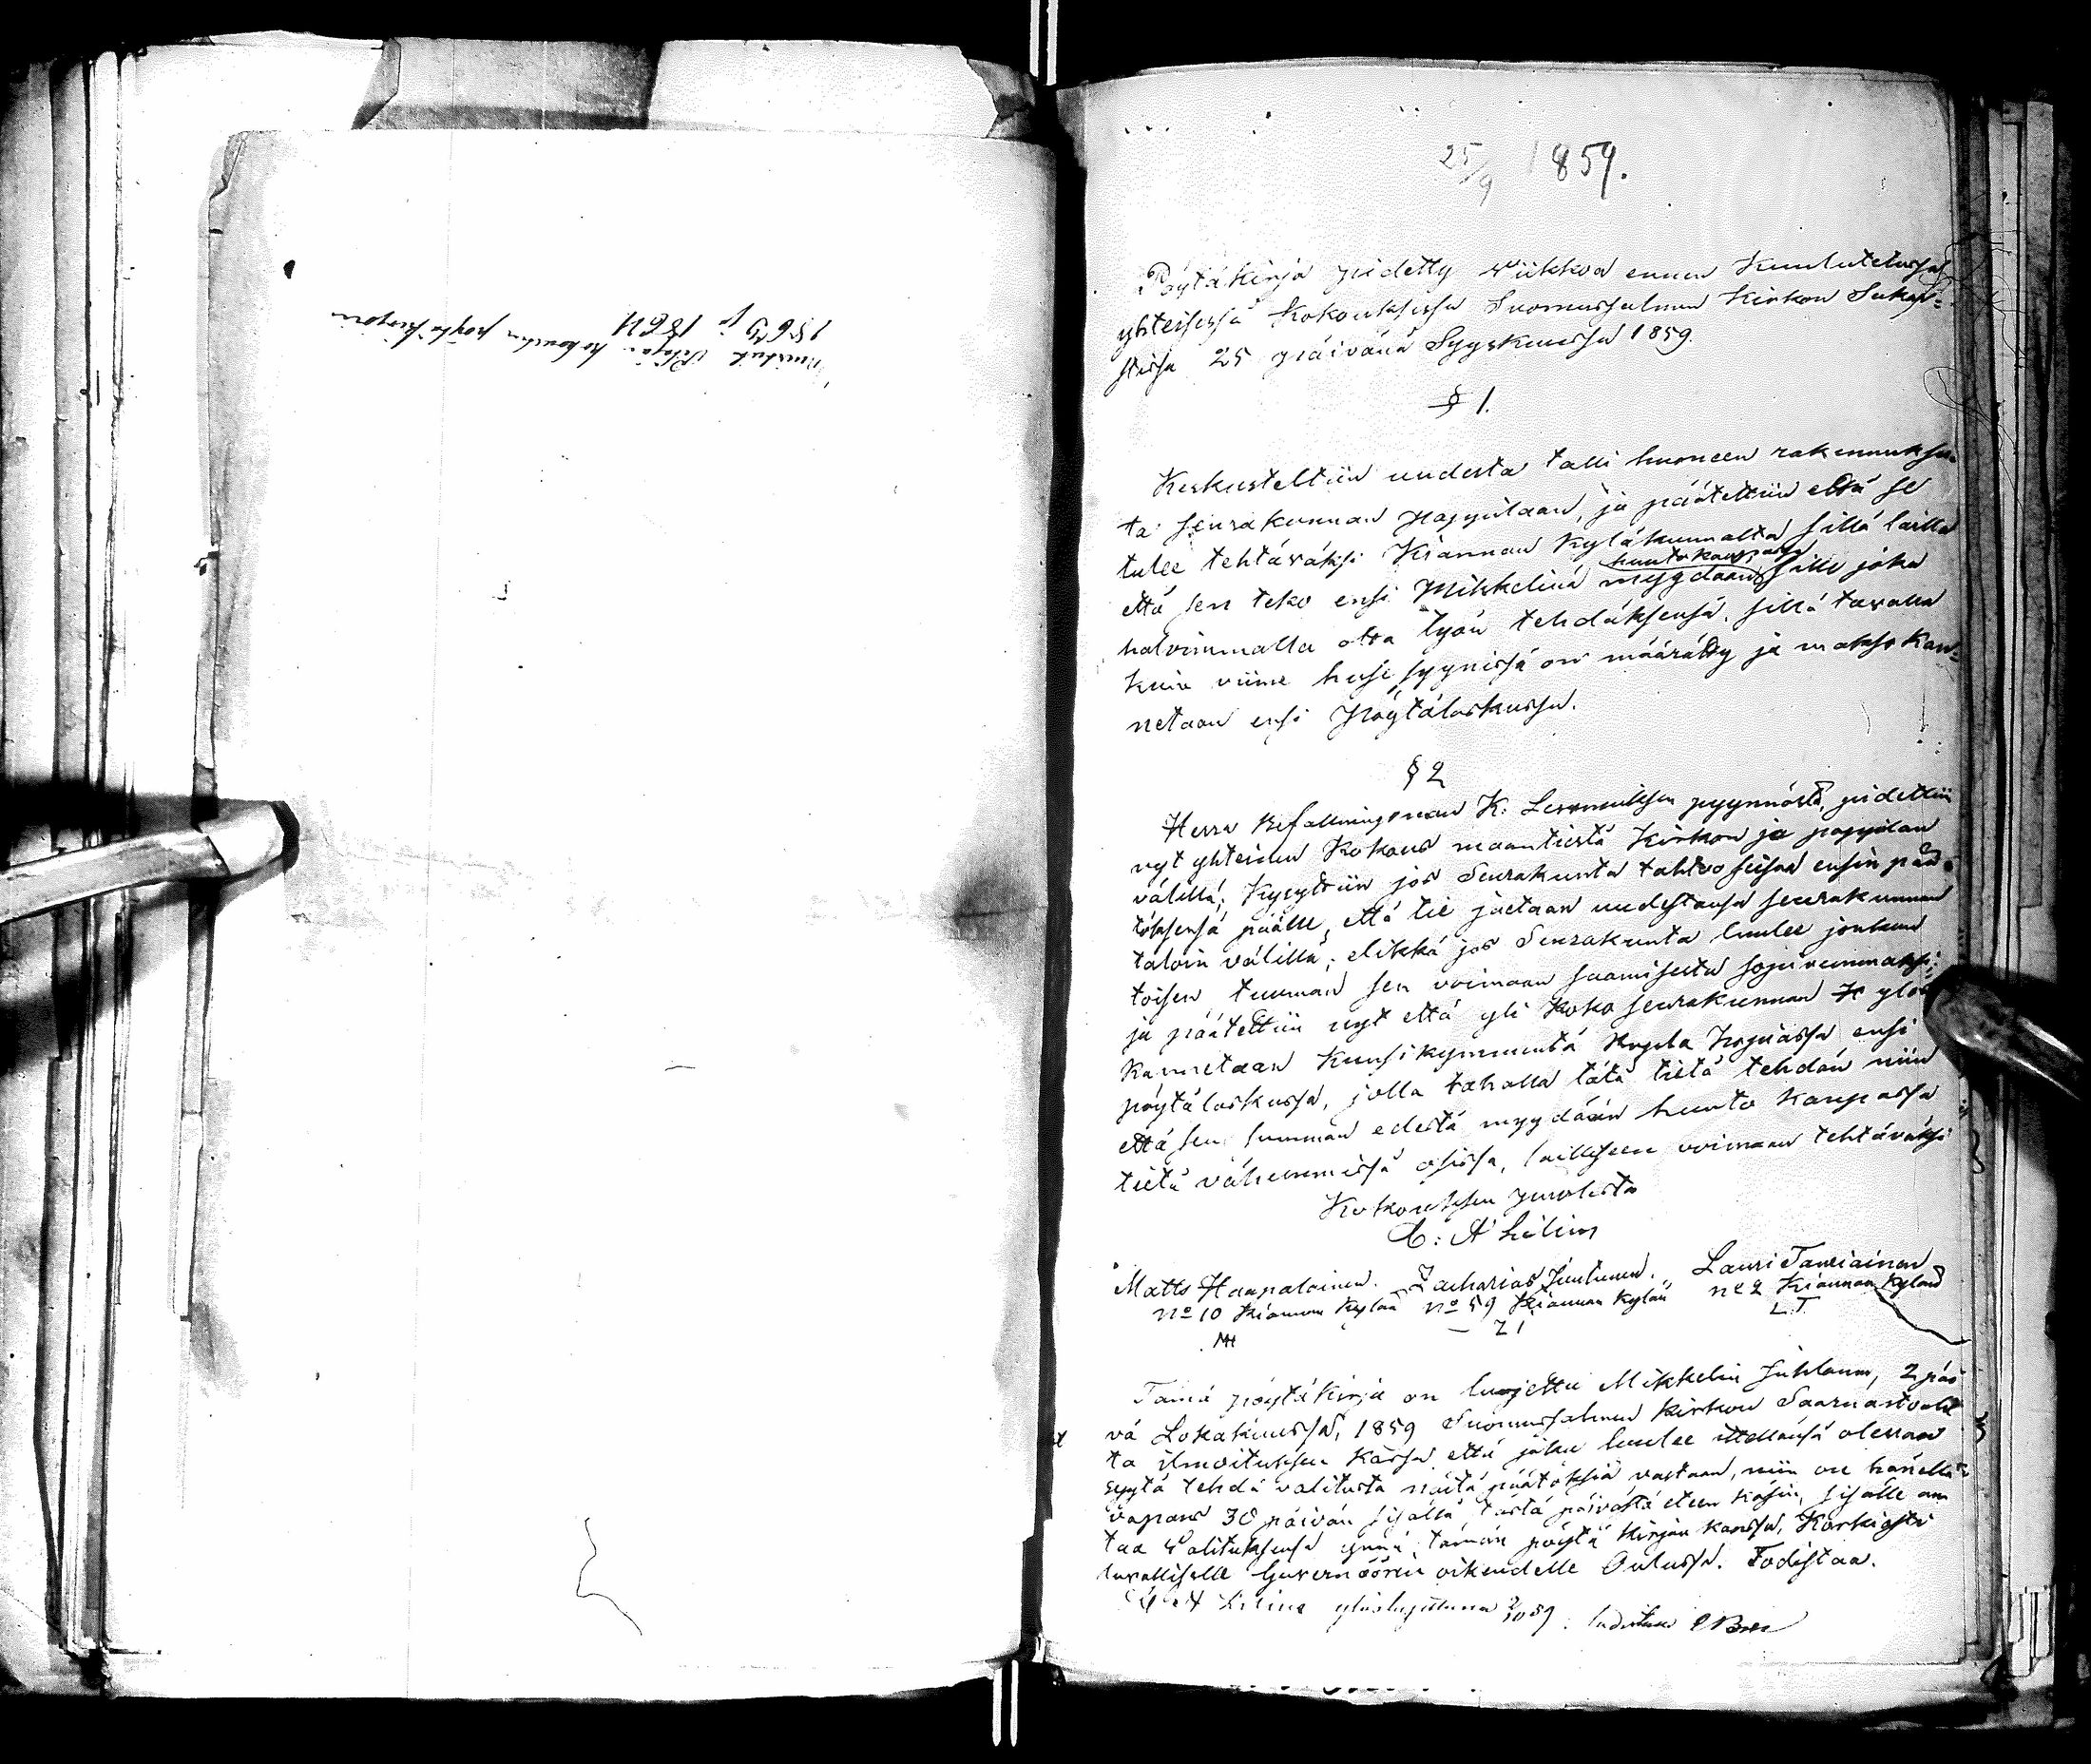 pitäjän kokousten pöytäkirjoja
1863 ja 1864
25/9 1859.
Pöytäkirja pidetty viikkoa ennen Kuulutetussa
yhteisessä Kokouksessa Suomussalmen Kirkon Sakas=
tissa 25 päivänä Syyskuussa 1859.
§ 1.
Keskusteltiin uudesta talli huoneen rakennukses-
ta seurakunnan pappilaan, ja päätettiin että se
tulee tehtäväksi Kiannan Kyläkunnalta sillä lailla
että sen teko ensi Mikkelinä huutokaupassa myydään sille joka
halvimmalla ottaa työn tehdäksensä, sillä tavalla
kuin viime husesyynissä on määrätty ja makso Kan=
netaan ensi Pöytäluskussa.
§ 2
Herra Befallningsman K: pyynnöstä, pidettiin
nyt yhteinen Kokous maantiestä Kirkon ja pappilan
välillä; Kysyttiin jos Seurakunta tahtoo seisoa ensin pää-
töksensä päälle, että tie jaetaan uudestansa seurakunnan
taloin välillä; elikkä jos Seurakunta luulee jonkun
toisen tuuman sen voimaan saamisesta sopivammaksi;
ja päätettiin nyt että yli koko seurakunnan ylös
kannetaan Kuusikymmentä Rupla hopiassa ensi
pöytäluskussa, jolla rahalla tätä tietä tehdän niin
että sen summan edestä myydään huuto kaupassa
tietä vähemmissä osissa, lailliseen voimaan tehtäväksi
Kokouksen puolesta
C: A
Matts Haapalainen. Zacharias Juntunen. Lauri Tauriainen
No 10 Kiannan Kylää No 59 Kiannan Kylää No 2 Kiannan Kylää
MH ZI LT
Tämä pöytäkirja on luojettu Mikkelin Juhlanna, 2 päi
vä Lokakuussa, 1859 Suomussalmen Kirkon Saarnastuolil
ta ilmoituksen kässä että joka luulee ittellänsä olevan
syytä tehdä valitusta näitä päätöksiä vastaan, niin on hänellä
vapaus 30 päivän sisällä, tästä päivästä eteen käsin, sisälle an
taa Valituksensa ynnä tämän pöytä kirjan kanssa, Korkiasti
luvalliselle Guvernöörin oikeudelle Oulussa. Todistaa.
C A ylösluettuna 2/10 59.